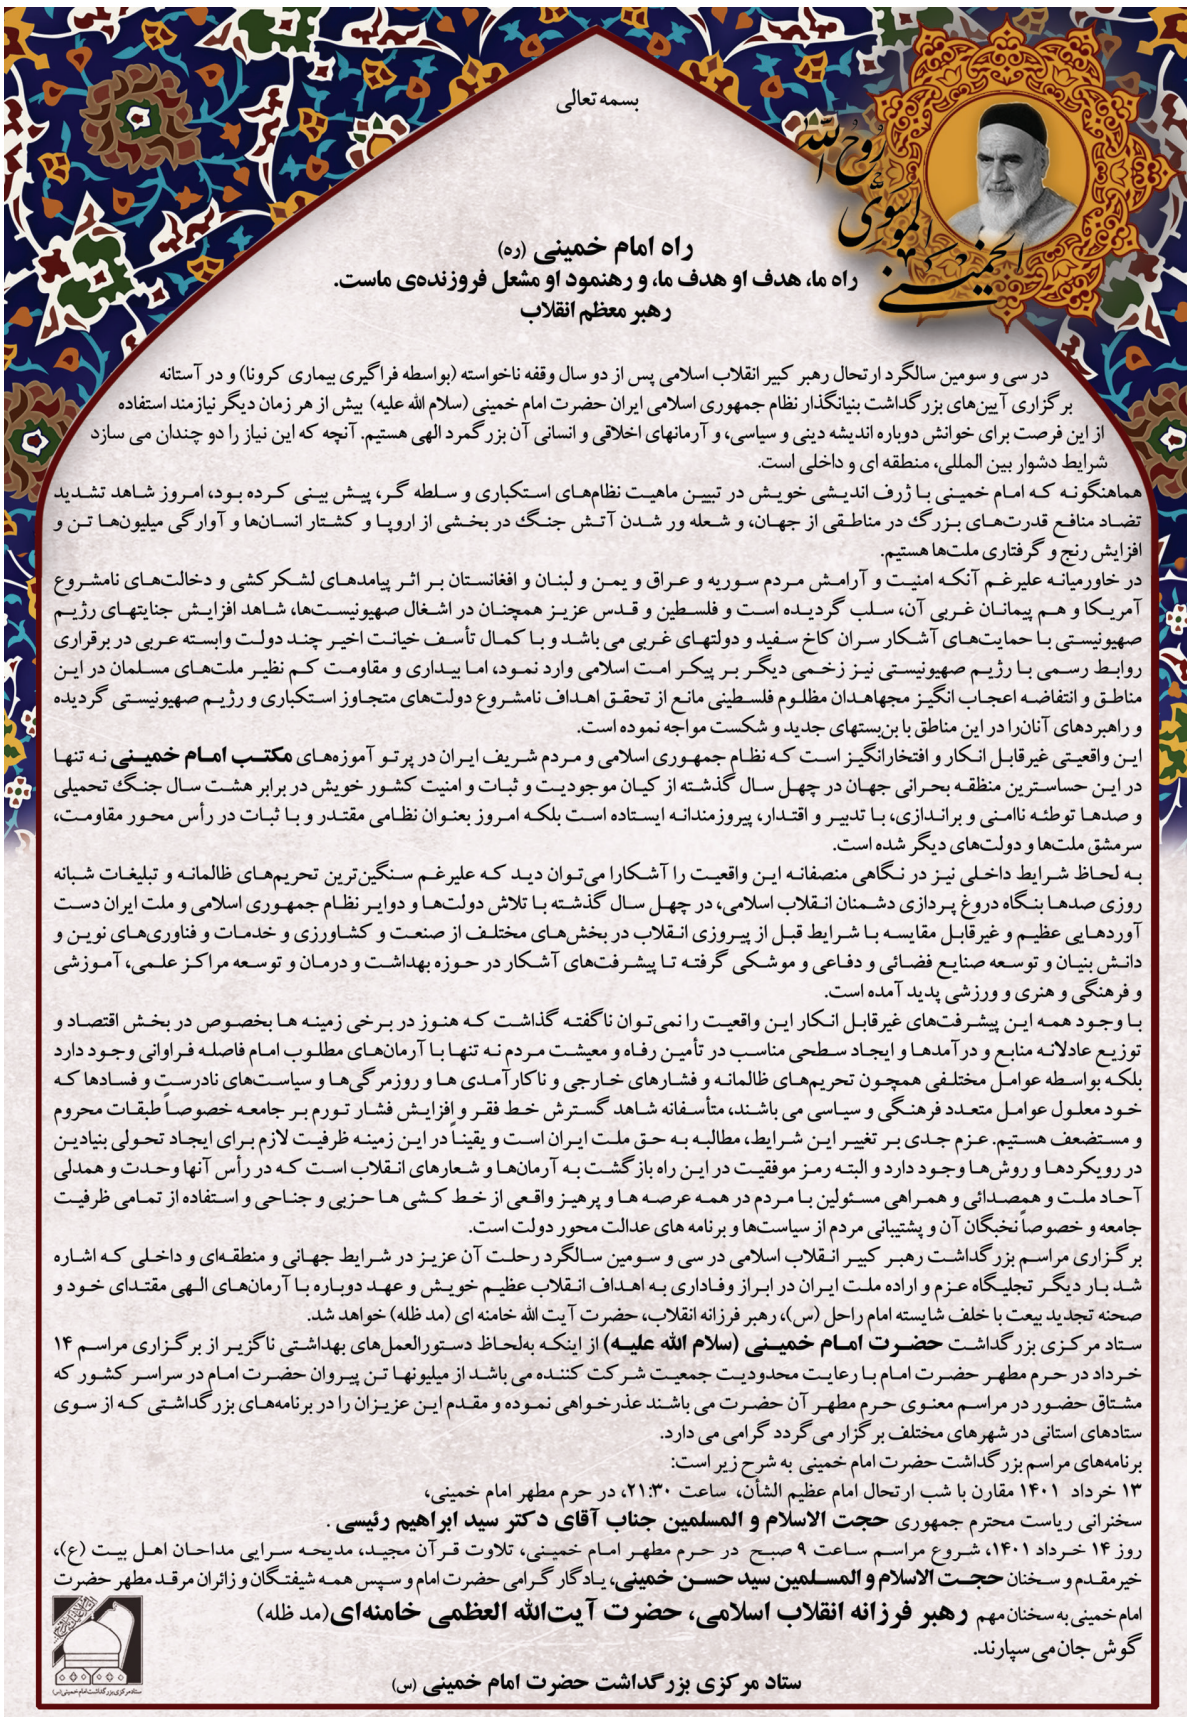 بسمه تعالی
روح الله
الموسوی
الخمینی
راه امام خمینی (ره)
راه ما، هدف او هدف ما، و رهنمود او مشعل فروزنده‌ی ماست.
رهبر معظم انقلاب
در سی و سومین سالگرد ارتحال رهبر کبیر انقلاب اسلامی پس از دو سال وقفه ناخواسته (بواسطه فراگیری بیماری کرونا) و در آستانه
برگزاری آیین‌های بزرگداشت بنیانگذار نظام جمهوری اسلامی ایران حضرت امام خمینی (سلام الله علیه) بیش از هر زمان دیگر نیازمند استفاده
از این فرصت برای خوانش دوباره اندیشه دینی و سیاسی، و آرمانهای اخلاقی و انسانی آن بزرگمرد الهی هستیم. آنچه که این نیاز را دو چندان می سازد
شرایط دشوار بین المللی، منطقه ای و داخلی است.
هماهنگونه که امام خمینی با ژرف اندیشی خویش در تبیین ماهیت نظام‌های استکباری و سلطه گر، پیش بینی کرده بود، امروز شاهد تشدید
تضاد منافع قدرت‌های بزرگ در مناطقی از جهان، و شعله ور شدن آتش جنگ در بخشی از اروپا و کشتار انسان‌ها و آوارگی میلیون‌ها تن و
افزایش رنج و گرفتاری ملت‌ها هستیم.
در خاورمیانه علیرغم آنکه امنیت و آرامش مردم سوریه و عراق و یمن و لبنان و افغانستان بر اثر پیامدهای لشکرکشی و دخالت‌های نامشروع
آمریکا و هم پیمانان غربی آن، سلب گردیده است و فلسطین و قدس عزیز همچنان در اشغال صهیونیست‌ها، شاهد افزایش جنایتهای رژیم
صهیونیستی با حمایت‌های آشکار سران کاخ سفید و دولتهای غربی می باشد و با کمال تأسف خیانت اخیر چند دولت وابسته عربی در برقراری
روابط رسمی با رژیم صهیونیستی نیز زخمی دیگر بر پیکر امت اسلامی وارد نمود، اما بیداری و مقاومت کم نظیر ملت‌های مسلمان در این
مناطق و انتفاضه اعجاب انگیز مجهاهدان مظلوم فلسطینی مانع از تحقق اهداف نامشروع دولت‌های متجاوز استکباری و رژیم صهیونیستی گردیده
و راهبردهای آنان‌را در این مناطق با بن‌بستهای جدید و شکست مواجه نموده است.
این واقعیتی غیرقابل انکار و افتخارانگیز است که نظام جمهوری اسلامی و مردم شریف ایران در پرتو آموزه‌های مکتب امام خمینی نه تنها
در این حساسترین منطقه بحرانی جهان در چهل سال گذشته از کیان موجودیت و ثبات و امنیت کشور خویش در برابر هشت سال جنگ تحمیلی
و صدها توطئه ناامنی و براندازی، با تدبیر و اقتدار، پیروزمندانه ایستاده است بلکه امروز بعنوان نظامی مقتدر و با ثبات در رأس محور مقاومت،
سرمشق ملت‌ها و دولت‌های دیگر شده است.
به لحاظ شرایط داخلی نیز در نگاهی منصفانه این واقعیت را آشکارا می‌توان دید که علیرغم سنگین‌ترین تحریم‌های ظالمانه و تبلیغات شبانه
روزی صدها بنگاه دروغ پردازی دشمنان انقلاب اسلامی، در چهل سال گذشته با تلاش دولت‌ها و دوایر نظام جمهوری اسلامی و ملت ایران دست
آوردهایی عظیم و غیرقابل مقایسه با شرایط قبل از پیروزی انقلاب در بخش‌های مختلف از صنعت و کشاورزی و خدمات و فناوری‌های نوین و
دانش بنیان و توسعه صنایع فضائی و دفاعی و موشکی گرفته تا پیشرفت‌های آشکار در حوزه بهداشت و درمان و توسعه مراکز علمی، آموزشی
و فرهنگی و هنری و ورزشی پدید آمده است.
با وجود همه این پیشرفت‌های غیرقابل انکار این واقعیت را نمی‌توان ناگفته گذاشت که هنوز در برخی زمینه ها بخصوص در بخش اقتصاد و
توزیع عادلانه منابع و درآمدها و ایجاد سطحی مناسب در تأمین رفاه و معیشت مردم نه تنها با آرمان‌های مطلوب امام فاصله فراوانی وجود دارد
بلکه بواسطه عوامل مختلفی همچون تحریم‌های ظالمانه و فشارهای خارجی و ناکارآمدی ها و روزمرگی‌ها و سیاست‌های نادرست و فسادها که
خود معلول عوامل متعدد فرهنگی و سیاسی می باشند، متأسفانه شاهد گسترش خط فقر و افزایش فشار تورم بر جامعه خصوصاً طبقات محروم
و مستضعف هستیم. عزم جدی بر تغییر این شرایط، مطالبه به حق ملت ایران است و یقیناً در این زمینه ظرفیت لازم برای ایجاد تحولی بنیادین
در رویکردها و روش‌ها وجود دارد و البته رمز موفقیت در این راه بازگشت به آرمان‌ها و شعارهای انقلاب است که در رأس آنها وحدت و همدلی
آحاد ملت و همصدائی و همراهی مسئولین با مردم در همه عرصه ها و پرهیز واقعی از خط کشی ها حزبی و جناحی و استفاده از تمامی ظرفیت
جامعه و خصوصاً نخبگان آن و پشتیبانی مردم از سیاست‌ها و برنامه های عدالت محور دولت است.
برگزاری مراسم بزرگداشت رهبر کبیر انقلاب اسلامی در سی و سومین سالگرد رحلت آن عزیز در شرایط جهانی و منطقه‌ای و داخلی که اشاره
شد بار دیگر تجلیگاه عزم و اراده ملت ایران در ابراز وفاداری به اهداف انقلاب عظیم خویش و عهد دوباره با آرمان‌های الهی مقتدای خود و
صحنه تجدید بیعت با خلف شایسته امام راحل (س)، رهبر فرزانه انقلاب، حضرت آیت الله خامنه ای (مد ظله) خواهد شد.
ستاد مرکزی بزرگداشت حضرت امام خمینی (سلام الله علیه) از اینکه به‌لحاظ دستورالعمل‌های بهداشتی ناگزیر از برگزاری مراسم ۱۴
خرداد در حرم مطهر حضرت امام با رعایت محدودیت جمعیت شرکت کننده می باشد از میلیونها تن پیروان حضرت امام در سراسر کشور که
مشتاق حضور در مراسم معنوی حرم مطهر آن حضرت می باشند عذرخواهی نموده و مقدم این عزیزان را در برنامه‌های بزرگداشتی که از سوی
ستادهای استانی در شهرهای مختلف برگزار می‌گردد گرامی می دارد.
برنامه‌های مراسم بزرگداشت حضرت امام خمینی به شرح زیر است:
۱۳ خرداد ۱۴۰۱ مقارن با شب ارتحال امام عظیم الشأن، ساعت ۲۱:۳۰، در حرم مطهر امام خمینی،
سخنرانی ریاست محترم جمهوری حجت الاسلام و المسلمین جناب آقای دکتر سید ابراهیم رئیسی .
روز ۱۴ خرداد ۱۴۰۱، شروع مراسم ساعت ۹ صبح در حرم مطهر امام خمینی، تلاوت قرآن مجید، مدیحه سرایی مداحان اهل بیت (ع)،
خیرمقدم و سخنان حجت الاسلام و المسلمین سید حسن خمینی، یادگار گرامی حضرت امام و سپس همه شیفتگان و زائران مرقد مطهر حضرت
امام خمینی به سخنان مهم رهبر فرزانه انقلاب اسلامی، حضرت آیت‌الله العظمی خامنه‌ای(مد ظله)
گوش جان می سپارند.
ستاد مرکزی بزرگداشت حضرت امام خمینی (س)
ستاد مرکزی بزرگداشت امام خمینی (س)